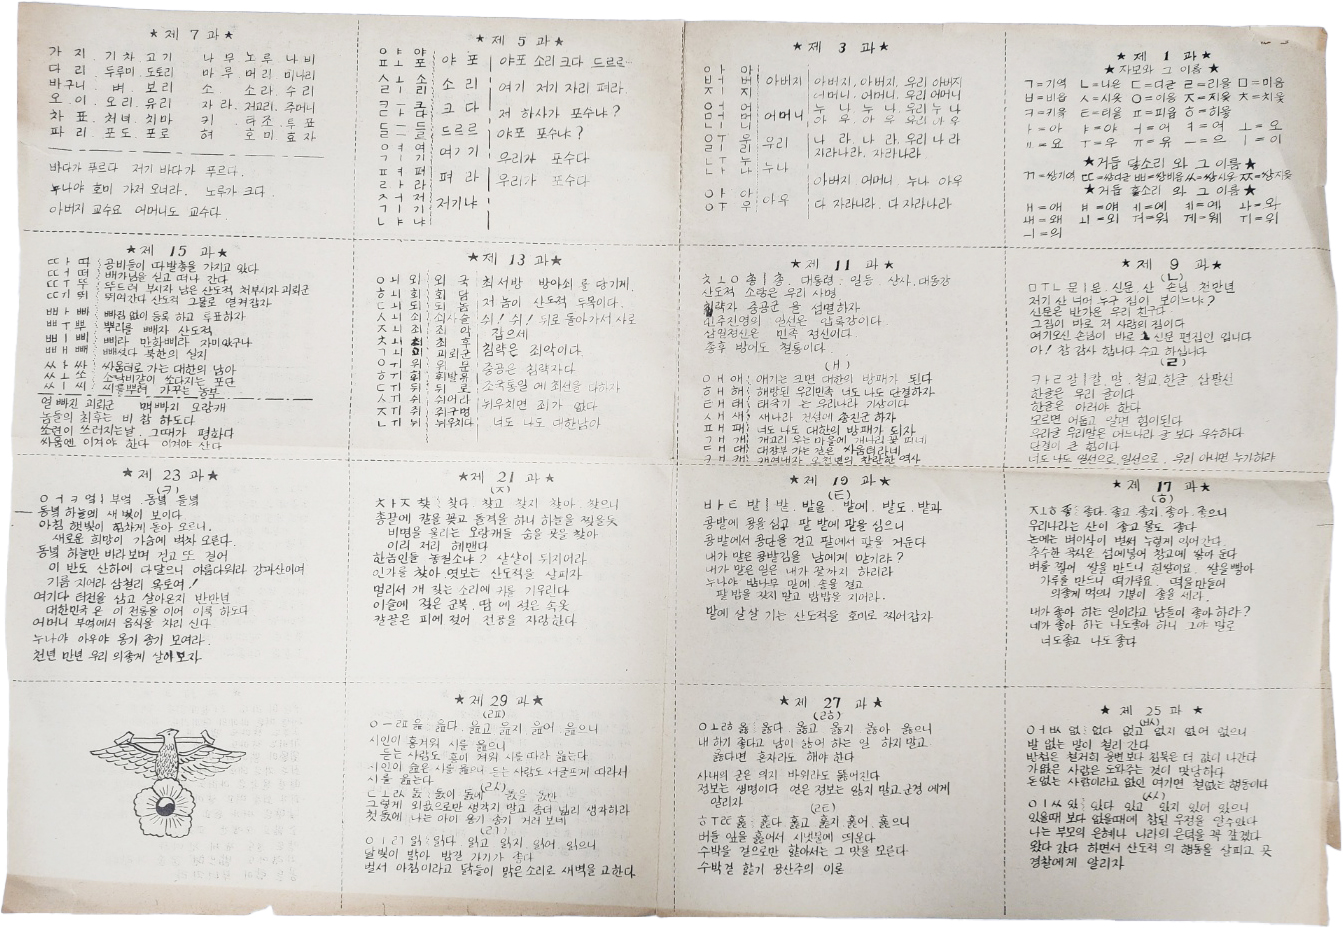 ★ 제 7 과 ★
가 지 기차 고기 나무 노루 나비
다 리 . 두루미 . 도토리 마루 머리 미나리
바구니 벼 . 보리 소 소라 . 수리
오 . 이 . 오리 . 유리 자라 . 저고리 . 주머니
차 표 . 처녀 . 치마 키 . 타조 . 투표
파리 . 포도 . 포로 혀 호미 효자
바다가 푸르다 저기 바다가 푸르다.
누나야 호미 가져 오너라. 노루가 크다.
아버지 교수요 어머니도 교수다.
★ 제 5 과 ★
ㅇㅑ 야
ㅍㅗ 포 야 포 야포 소리 크다 드르르…
ㅅㅗ 소
ㄹㅣ 리 소 리 여기 저기 자리 펴라.
ㅋㅡ 크
ㄷㅏ 다 크 다 저 하사가 포수냐?
ㄷㅡ 드
ㄹㅡ 르 드르르 야포 포수냐?
ㅇㅕ 여
ㄱㅣ 기 여기 우리가 포수다
ㅍㅕ 펴
ㄹㅏ 라 펴 라 우리가 포수다
ㅈㅓ 저
ㄱㅣ 기
ㄴㅑ 냐 저기냐
★ 제 3 과 ★
ㅇㅏ 아
ㅂㅓ 버
ㅈㅣ 지 아버지 아버지. 아버지. 우리 아버지
어머니. 어머니. 우리 어머니
ㅇㅓ 어
ㅁㅓ 머
ㄴㅣ 니 어머니 누 나 누 나. 우리 누 나
아 우 아 우 우리 아 우
ㅇㅜ 우
ㄹㅣ 리 우리 나 라. 나 라. 우리 나 라
자라나라. 자라나라
ㄴㅜ 누
ㄴㅏ 나 누나 아버지. 어머니. 누나 아우
ㅇㅏ 아
ㅇㅜ 우 아우 다 자라나라. 다 자라나라
★ 제 1 과 ★
★ 자모와 그 이름 ★
ㄱ=기역 ㄴ=니은 ㄷ=디귿 ㄹ=리을 ㅁ=미음
ㅂ=비읍 ㅅ=시옷 ㅇ=이응 ㅈ=지읒 ㅊ=치읓
ㅋ=키읔 ㅌ=티읕 ㅍ=피읖 ㅎ=히읗
ㅏ=아 ㅑ=야 ㅓ=어 ㅕ=여 ㅗ=오
ㅛ=요 ㅜ=우 ㅠ=유 ㅡ=으 ㅣ=이
★ 거듭 닿소리 와 그 이름 ★
ㄲ=쌍기역 ㄸ=쌍디귿 ㅃ=쌍비읍 ㅆ=쌍시옷 ㅉ=쌍지읒
★ 거듭 홀소리 와 그 이름 ★
ㅐ=애 ㅒ=얘 ㅔ=에 ㅖ=예 ㅘ=와
ㅙ=왜 ㅚ=외 ㅝ=워 ㅞ=웨 ㅟ=위
ㅢ=의
★ 제 15 과 ★
ㄸㅏ 따 공비들이 따발총을 가지고 있다
ㄸㅓ 떠 배가님을 싣고 떠나 간다
ㄸㅜ 뚜 뚜드려 부시자 남은 산도적 쳐부시자 괴뢰군
ㄸㅟ 뛰 뛰어간다 산도적 그물로 엮겨잡자
ㅃㅏ 빠 빠짐 없이 등록 하고 투표하자
ㅃㅜ 뿌 뿌리를 빼자 산도적
ㅃㅣ 삐 삐라 만화삐라 자미있구나
ㅃㅐ 빼 빼섰다 북한의 실지
ㅆㅏ 싸 싸움터로 가는 대한의 남아
ㅆㅗ 쏘 소낙비같이 쏘다지는 포탄
ㅆㅣ 씨 씨를뿌려 가꾸는 농부
얼 빠진 괴뢰군 맥 빠지 오랑캐
놈들의 최후는 비 참 하도다
쏘련이 쓰러지는날 . 그때가 평화다
싸움엔 이겨야 한다 이겨야 산다
★ 제 13 과 ★
ㅇㅚ 외 외 국 최서방 방아쇠 를 당기게.
ㅎㅚ 회 회 담 저 놈이 산도적 두목이다.
ㄷㅚ 되 되 놈
ㅅㅚ 쇠 쇠사슬 쉬! 쉬! 뒤로 돌아가서 사로
ㅈㅚ 죄 죄 악 잡으세
ㅊㅚ 최 최 후 침략은 죄악이다.
ㄱㅚ 괴 괴뢰군
ㅇㅟ 위 위 문 중공은 침략자다
ㅎㅟ 휘 휘발유 조국통일 에 최선을 다하자
ㄷㅟ 뒤 뒤 로
ㅅㅟ 쉬 쉬어라 뉘우치면 죄가 없다
ㅈㅟ 쥐 쥐구멍
ㄴㅟ 뉘 뉘우치다 너도 나도 대한남아
★ 제 11 과 ★
ㅊㅗㅇ 총 총 . 대통령 . 일등 . 상사 . 대동강
산도적 소탕은 우리 사명
침략자 중공군 을 섬멸하자
민주진영의 일선은 압록강이다.
삼일정신은 민족 정신이다.
총후 방어도 철통이다.
(ㅐ)
ㅇㅐ 애 애기는 크면 대한의 방패가 된다
ㅎㅐ 해 해방된 우리민족 너도 나도 단결하자
ㅌㅐ 태 태극기 는 우리나라 기상이다
ㅅㅐ 새 새나라 건설에 총진군 하자
ㅍㅐ 패 너도 나도 대한의 방패가 되자
ㄱㅐ 개 개고리 우는 마을에 개나리 꽃 피네
ㄷㅐ 대 대장부 가는 길은 싸움터라네
★ 제 9 과 ★
(ㄴ)
ㅁㅜㄴ 문 문 . 신문 . 산 . 손님 천만년
저기 산 너머 누구 집이 보이느냐?
신문은 반가운 우리 친구다.
그 집이 바로 저 사람의 집이다
여기오신 손님이 바로 신문 편집인 입니다
아! 참 감사 합니다 수고 하십니다
(ㄹ)
ㅋㅏㄹ 칼 칼 . 말 . 철교 . 한글 삼팔선
한글은 우리 글이다
한글은 아러야 한다
모르면 어둡고 알면 힘이된다
우리글 우리말은 어느나라 글 보다 우수하다
단결이 큰 힘이다
너도 나도 일선으로 일선으로 . 우리 아니면 누가하랴
★ 제 23 과 ★
(ㅋ)
ㅇㅓㅋ 엌 부엌 . 동녘 들녘
동녘 하늘에 새 빛이 보이다
아침 햇빛이 힘차게 돌아 오르니,
새로운 희망이 가슴에 벅차 오른다.
동녘 하늘만 바라보며 걷고 또 걸어
이 반도 산하에 다달으니 아름다워라 강과산이여
기름 지어라 삼철리 옥토여!
여기다 터전을 삼고 살아온지 반만년
대한민국 은 이 전통을 이어 이룩 하도다
어머니 부엌에서 음식을 차리 신다
누나야 아우야 옹기 종기 모여라.
천년 만년 우리 의좋게 살아보자
★ 제 21 과 ★
(ㅈ)
ㅊㅏㅈ 찾 찾다 . 찾고 찾지 찾아 . 찾으니
총끝에 칼을 꽂고 돌격을 하니 하늘을 찢을듯
비명을 울리는 오랑캐들 숨을 곳을 찾아
이리 저리 헤맨다
한놈인들 놓칠소냐? 샅샅이 뒤지어라
인가를 찾아 엿보는 산도적을 살피자
멀리서 개 짖는 소리에 귀를 기우린다
이슬에 젖은 군복 . 땀 에 젖은 속옷
칼끝은 피에 젖어 전공을 자랑한다
★ 제 19 과 ★
(ㅌ)
ㅂㅏㅌ 밭 밭 . 밭을 . 밭에 . 밭도 . 밭과
콩밭에 콩을 심고 팥 밭에 팥을 심으니
콩밭에서 콩단을 걷고 팥에서 팥을 거둔다
내가 맡은 콩밭김을 남에게 맡기랴?
내가 맡은 일은 내가 끝까지 하리라
누나야 밤나무 밑에 솥을 걸고
팥 밥을 잦지 말고 밤밥을 지어라.
밭에 살살 기는 산도적을 호미로 찍어잡자
★ 제 17 과 ★
(ㅎ)
ㅈㅗㅎ 좋 좋다 . 좋고 좋지 좋아 . 좋으니
우리나라는 산이 좋고 물도 좋다
논에는 벼이삭이 벌써 누렇게 익어 간다.
추수한 곡식은 섬에넣어 창고에 쌓아 둔다
벼를 찧어 쌀을 만드니 흰쌀이요 . 쌀을빻아
가루를 만드니 떡가루요 . 떡을만들어
의좋게 먹으니 기분이 좋을 세라.
내가 좋아 하는 일이라고 남들이 좋아 하랴?
네가 좋아 하는 나도좋아 하니 그야 말로
너도좋고 나도 좋다
★ 제 29 과 ★
(ㄿ)
ㅇㅡㄿ 읊 읊다 . 읊고 읊지 읊어 읊으니
시인이 흥겨워 시를 읊으니
듣는 사람도 흥이 겨워 시로 따라 읊는다
시인이 읊은 시를 읊으니 듣는 사람도 서글프게 따라서
시를 읊는다
(ㄽ)
ㄷㅗㄽ 돐 돐이 돐에 돐을 돐만
그렇게 외곬으로만 생각지 말고 좀더 넓리 생각하라
첫돐에 나는 아이 옹기 종기 거러 보네
(ㄺ)
ㅇㅣㄺ 읽 읽다 . 읽고 . 읽지 . 읽어 . 읽으니
달빛이 밝아 밤길 가기가 좋다
벌서 아침이라고 닭들이 맑은소리로 새벽을 고한다
★ 제 27 과 ★
(ㅀ)
ㅇㅗㅀ 옳 옳다 . 옳고 옳지 옳아 옳으니
내 하기 좋다고 남이 싫어 하는 일 하지 말고
옳다면 혼자라도 해야 한다
사내의 굳은 의지 바위라도 뚫어진다
정보는 생명이다 얻은 정보는 잃지 말고 군경 에게
알리자
(ㄾ)
ㅎㅜㄾ 훑 훑다 훑고 훑지 . 훑어 . 훑으니
버들 잎을 훑어서 시냇물에 띄운다
수박을 겉으로만 핥아서는 그 맛을 모른다
수박겉 핥기 공산주의 이론
★ 제 25 과 ★
(ㅄ)
ㅇㅓㅄ 없 없다 없고 없지 없어 없으니
발 없는 말이 철리 간다
가없은 사람은 도와주는 것이 맞당하다
돈없는 사람이라고 없인 여기면 철없는 행동이다
(ㅆ)
ㅇㅣㅆ 있 있다 있고 있지 있어 있으니
있을때 보다 없을때에 참된 우정을 알수있다
나는 부모의 은혜나 나라의 은덕을 꼭 갚겠다
왔다 갔다 하면서 산도적 의 행동을 살피고 곳
경찰에게 알리자